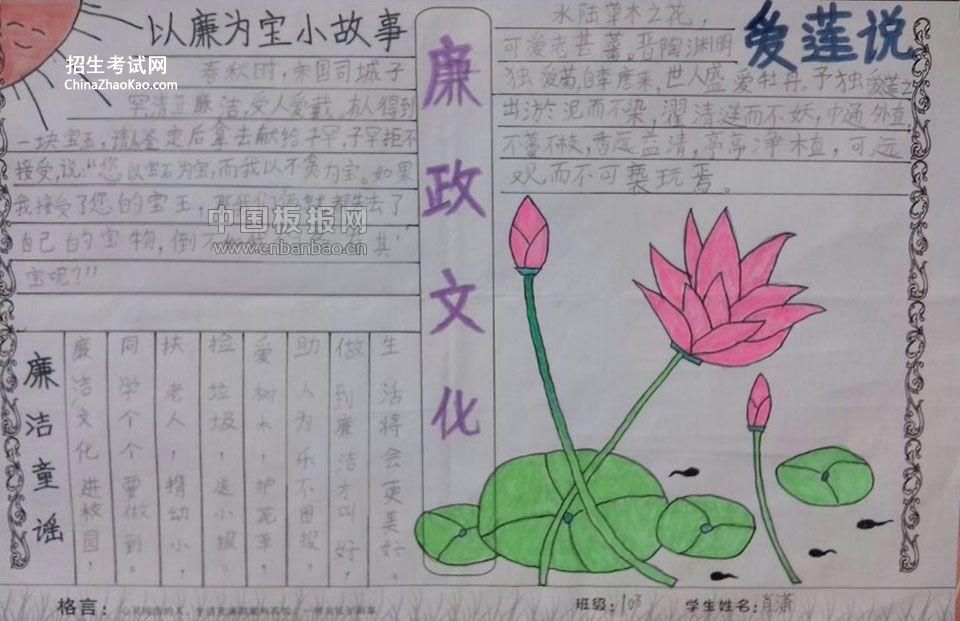 以廉为宝小故事
招生考试网
ChinaZhaoKao.com
春秋时，宋国司城子
罕清正廉洁，受人爱戴。有人得到
一块宝玉，请人鉴定后拿去献给子罕，子罕拒不
接受，说："您以宝石为宝，而我以不贪为宝。如果
我接受了您的宝玉，
自己的宝物，倒不如 其
宝呢？"
中国板报网
www.cnbanbao.cn
廉政文化
爱莲说
水陆草木之花，
可爱者甚蕃。晋陶渊明
独爱菊，自李唐来，世人盛爱牡丹。予独爱莲之
出淤泥而不染，濯清涟而不妖，中通外直，
不蔓不枝，香远益清，亭亭净植，可远
观而不可亵玩焉。
廉洁童谣
廉洁文化进校园，
同学个个要做到。
扶老人，携幼小，
捡垃圾，送小报。
爱树木，护花草，
助人为乐不图报，
做到廉洁才叫好，
生活将会更美好。
格言：
班级：103
学生姓名：肖潇